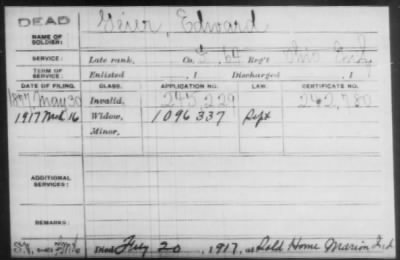 DEAD
NAME OF SOLDIER: Geier, Edward
SERVICE: Late rank, Co. 64 Reg't Ohio Inf
TERM OF SERVICE: Enlisted , 1 Discharged , 1
DATE OF FILING. CLASS. APPLICATION NO. LAW. CERTIFICATE NO.
May 30 Invalid, 245,229 242,780
1917 Mch 16 Widow, 1096337 Sept
Minor,
ADDITIONAL SERVICES:
REMARKS:
Died 20, 1917, at Sold Home Marion Ind